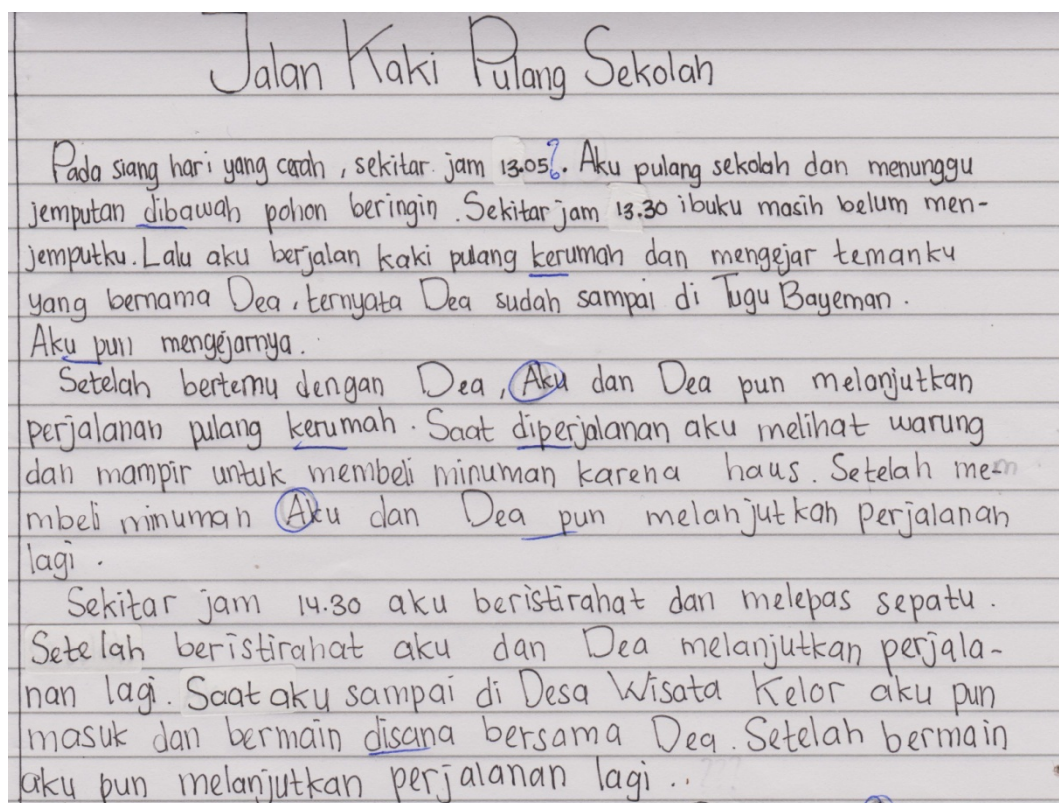 Jalan Kaki Pulang Sekolah
Pada siang hari yang cerah, sekitar jam 13.05?. Aku pulang sekolah dan menunggu
jemputan dibawah pohon beringin. Sekitar jam 13.30 ibuku masih belum men-
jemputku. Lalu aku berjalan kaki pulang kerumah dan mengejar temanku
yang bernama Dea, ternyata Dea sudah sampai di Tugu Bayeman.
Aku pun mengejarnya.
Setelah bertemu dengan Dea, Aku dan Dea pun melanjutkan
perjalanan pulang kerumah. Saat diperjalanan aku melihat warung
dan mampir untuk membeli minuman karena haus. Setelah me-m
mbeli minuman Aku dan Dea pun melanjutkan perjalanan
lagi.
Sekitar jam 14.30 aku beristirahat dan melepas sepatu.
Setelah beristirahat aku dan Dea melanjutkan perjala-
nan lagi. Saat aku sampai di Desa Wisata Kelor aku pun
masuk dan bermain disana bersama Dea. Setelah bermain
aku pun melanjutkan perjalanan lagi.. ???